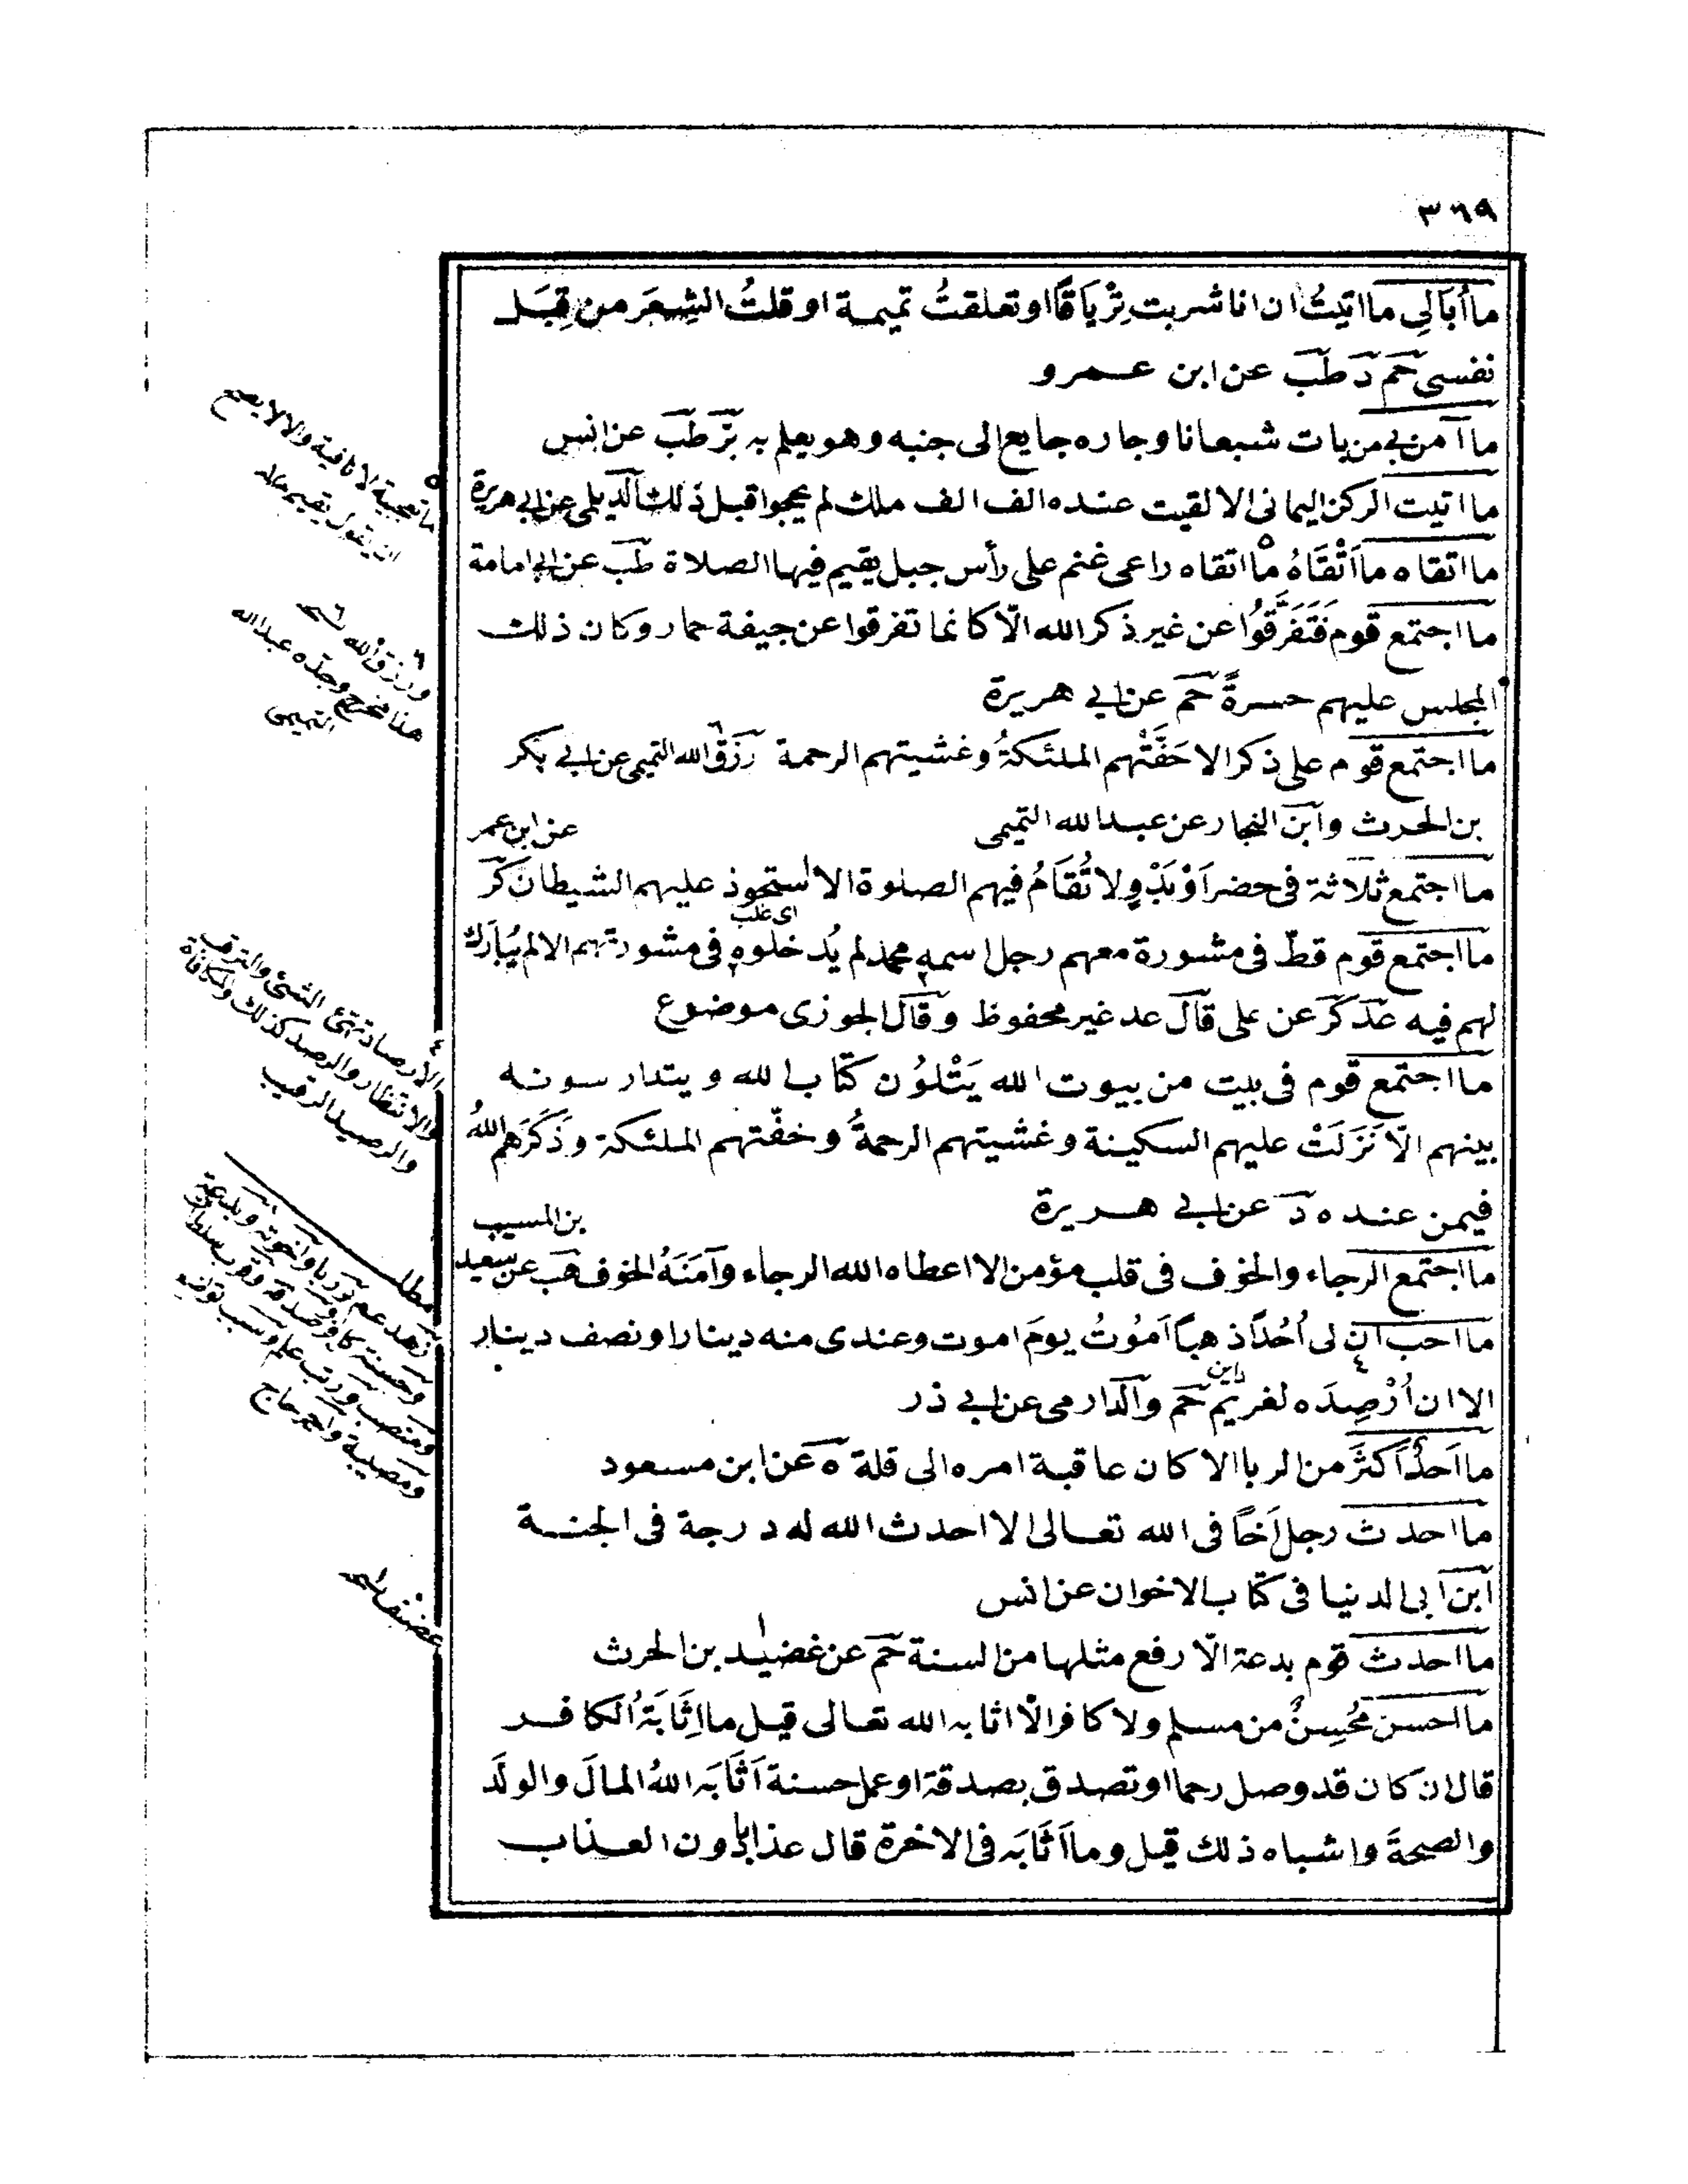 ٣٦٩
ما أُبَالِى ما اتيتُ ان انا شربت تِرْيَاقًا او تعلقتُ تميمة او قلتُ الشِعرَ من قِبَل
نفسى حم د طب عن ابن عمرو
ما آمن بى من بات شبعانا وجاره جايع الى جنبه وهو يعلم به بز طب عن انس
ما اتيت الركن اليمانى الا لقيت عنده الف الف ملك لم يحجوا قبل ذلك الديلمى عن ابى هريرة
ما اتقاه ما اَتْقَاهُ ما اتقاه راعى غنم على رأس جبل يقيم فيها الصلاة طب عن ابى امامة
ما اجتمع قوم فَتَفَرَّقُوا عن غير ذكر الله الّا كانما تفرقوا عن جيفة حمار وكان ذلك
المجلس عليهم حسرةً حم عن ابى هريرة
ما اجتمع قوم على ذكر الا حَفَّتْهم الملئكةُ وغشيتهم الرحمة رزق الله التميمى عن ابى بكر
بن الحرث وابن النجار عن عبد الله التميمى
عن ابن عمر
ما اجتمع ثلاثة فى حضر اَوْ بَدْوٍ لا تُقَامُ فيهم الصلوة الا استحوذ عليهم الشيطان كر
اى غلب
ما اجتمع قوم قطّ فى مشورة معهم رجل اسمه محمد لم يُدخلوه فى مشورتهم الا لم يُبارَك
لهم فيه عد كر عن على قال عد غير محفوظ وقال الجوزى موضوع
ما اجتمع قوم فى بيت من بيوت الله يَتْلوُن كتاب الله ويتدارسونه
بينهم الّا نَزَلَتْ عليهم السكينة وغشيتهم الرحمةُ وحفّتهم الملئكة وذَكَرَهم اللهُ
فيمن عنده د عن ابى هريرة
بن المسيب
ما اجتمع الرجاء والخوف فى قلب مؤمن الا اعطاه الله الرجاء وآمَنَهُ الخوف هب عن سعيد
ما احب ان لى اُحُدًا ذهبًا اَمُوْتُ يومَ اموت وعندى منه دينار او نصف دينار
الا ان اُرْصِدَه لغريم حم والدارمى عن ابى ذر
داين
ما اَحدٌ اَكثَرَ من الربا الا كان عاقبة امره الى قلة ه عن ابن مسعود
ما احدث رجل اَخًا فى الله تعالى الا احدث الله له درجة فى الجنة
ابن ابى الدنيا فى كتاب الاخوان عن انس
ما احدث قوم بدعة الّا رفع مثلها من السنة حم عن غضيد بن الحرث
ما احسن مُحْسِنٌ من مسلم ولا كافر الّا اثابه الله تعالى قيل ما اِثَابَةُ الكافر
قال ان كان قد وصل رحما او تصدق بصدقة او عمل حسنة اَثَابَه اللهُ المالَ والولَد
والصحةَ واشباه ذلك قيل وما اَثَابَه فى الاخرة قال عذابا دون العذاب
ما تعجبية الا نافية والا لا يصح
ان يقول يقيم
ورزق الله
هذا مخرج وجدّه عبد الله
التميمى
الارصاد تهيّئ الشئ والترقب
والانتظار والرصد كذلك والمكافاة
والرصيد الرقيب
مطلب